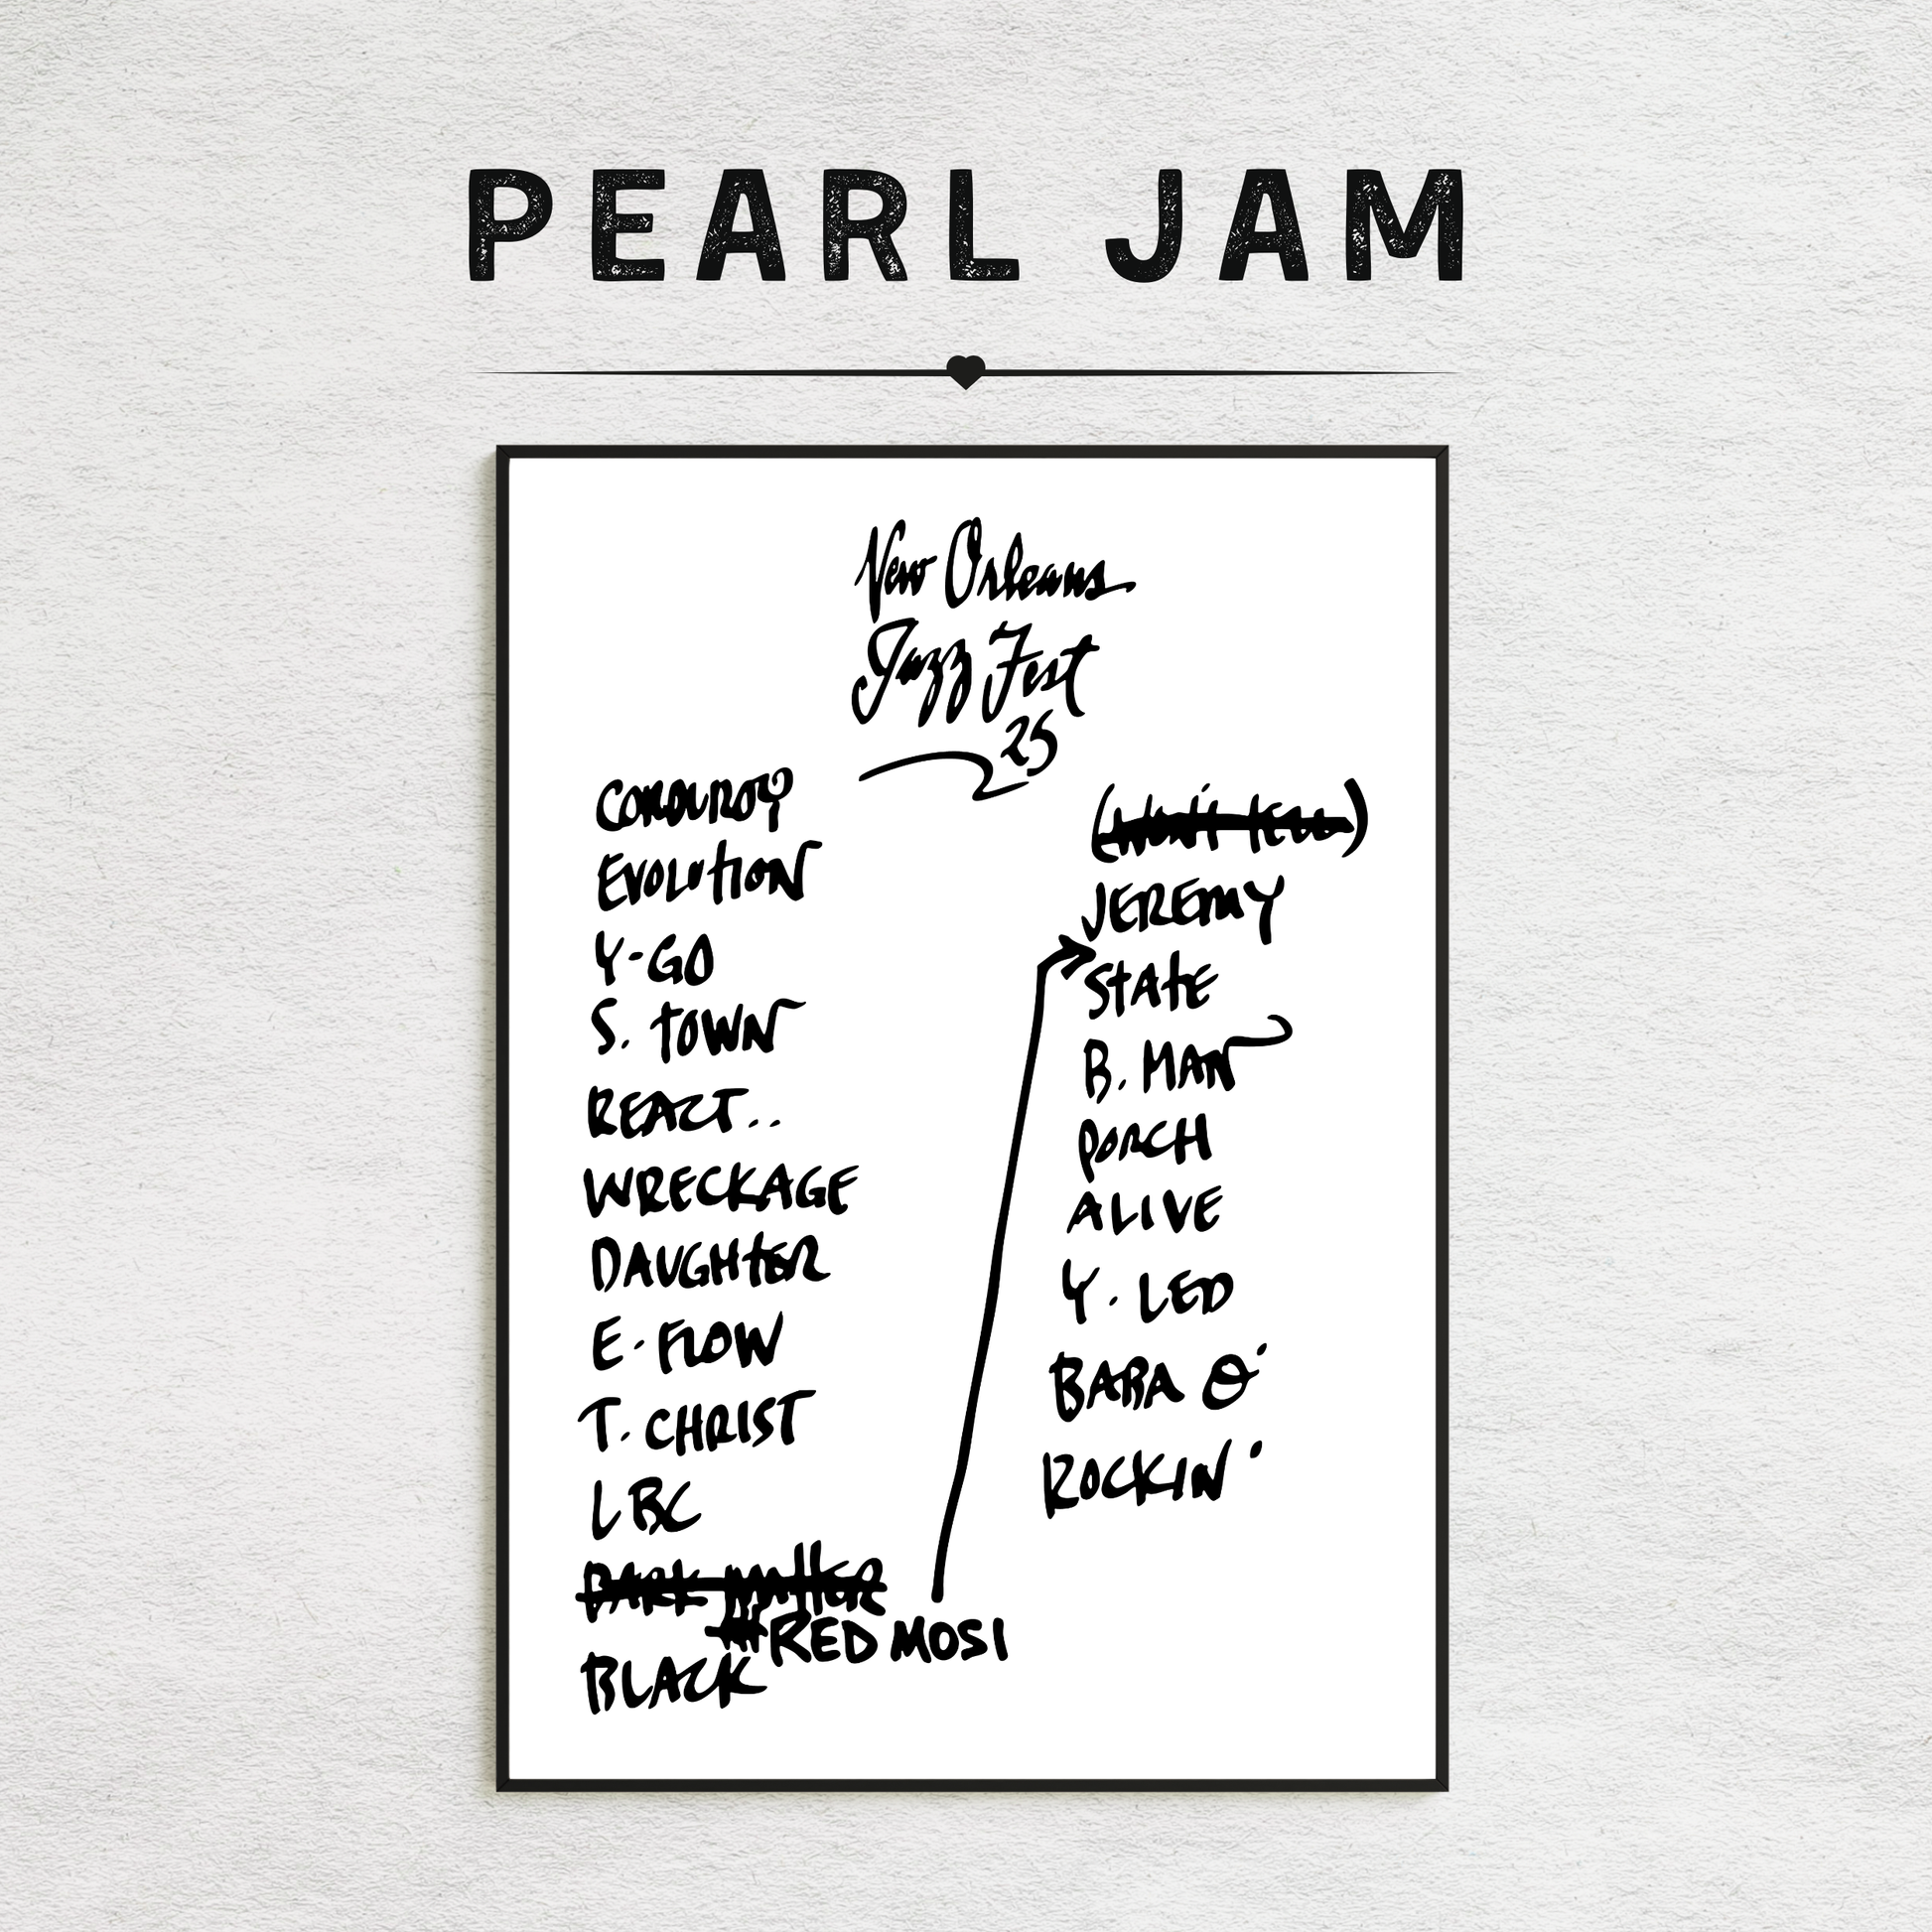 PEARL JAM
New Orleans
Jazz Fest
25
CORDUROY
EVOLUTION
Y-GO
S. TOWN
REACT..
WRECKAGE
DAUGHTER
E. FLOW
T. CHRIST
LBC
DARK MATTER
RED MOSI
BLACK
(WON'T TELL)
JEREMY
STATE
B. MAN
PORCH
ALIVE
Y. LED
BABA O'
ROCKIN'